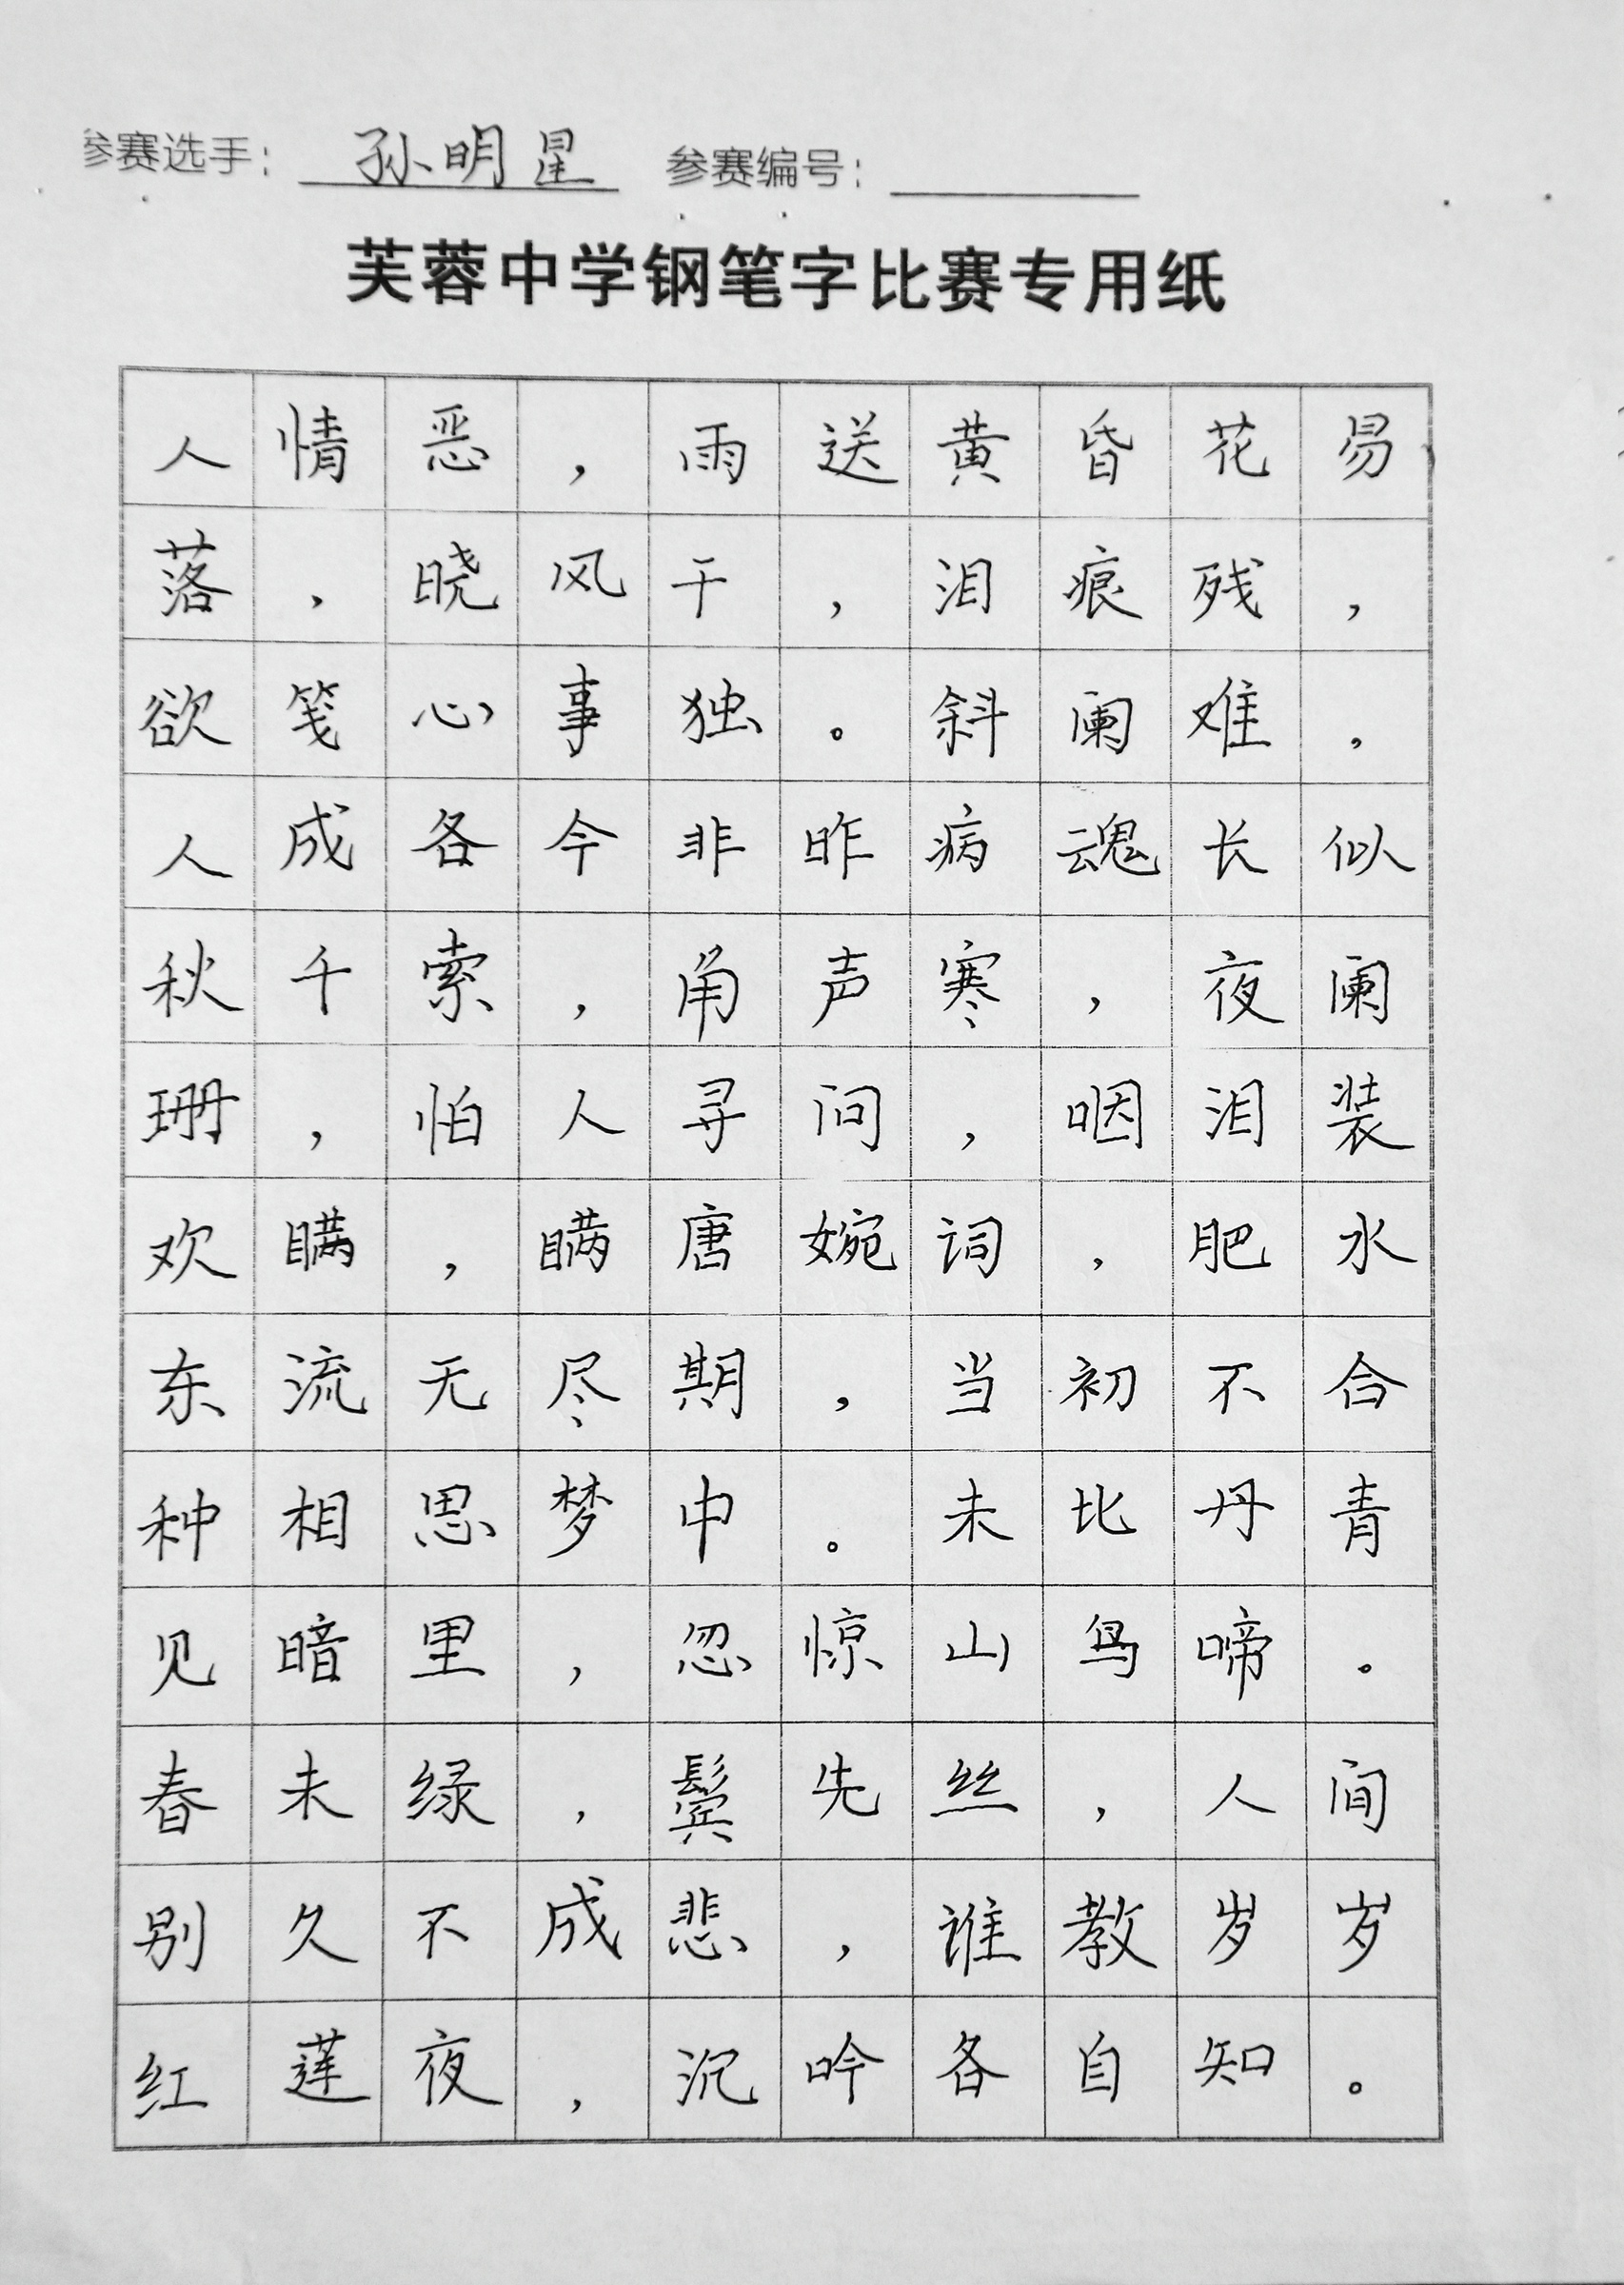 参赛选手：孙明星 参赛编号：
芙蓉中学钢笔字比赛专用纸
人情恶，雨送黄昏花易
落，晓风干，泪痕残，
欲笺心事独。斜阑难，
人成各今非昨病魂长似
秋千索，角声寒，夜阑
珊，怕人寻问，咽泪装
欢瞒，瞒唐婉词，肥水
东流无尽期，当初不合
种相思梦中。未比丹青
见暗里，忽惊山鸟啼。
春未绿，鬓先丝，人间
别久不成悲，谁教岁岁
红莲夜，沉吟各自知。